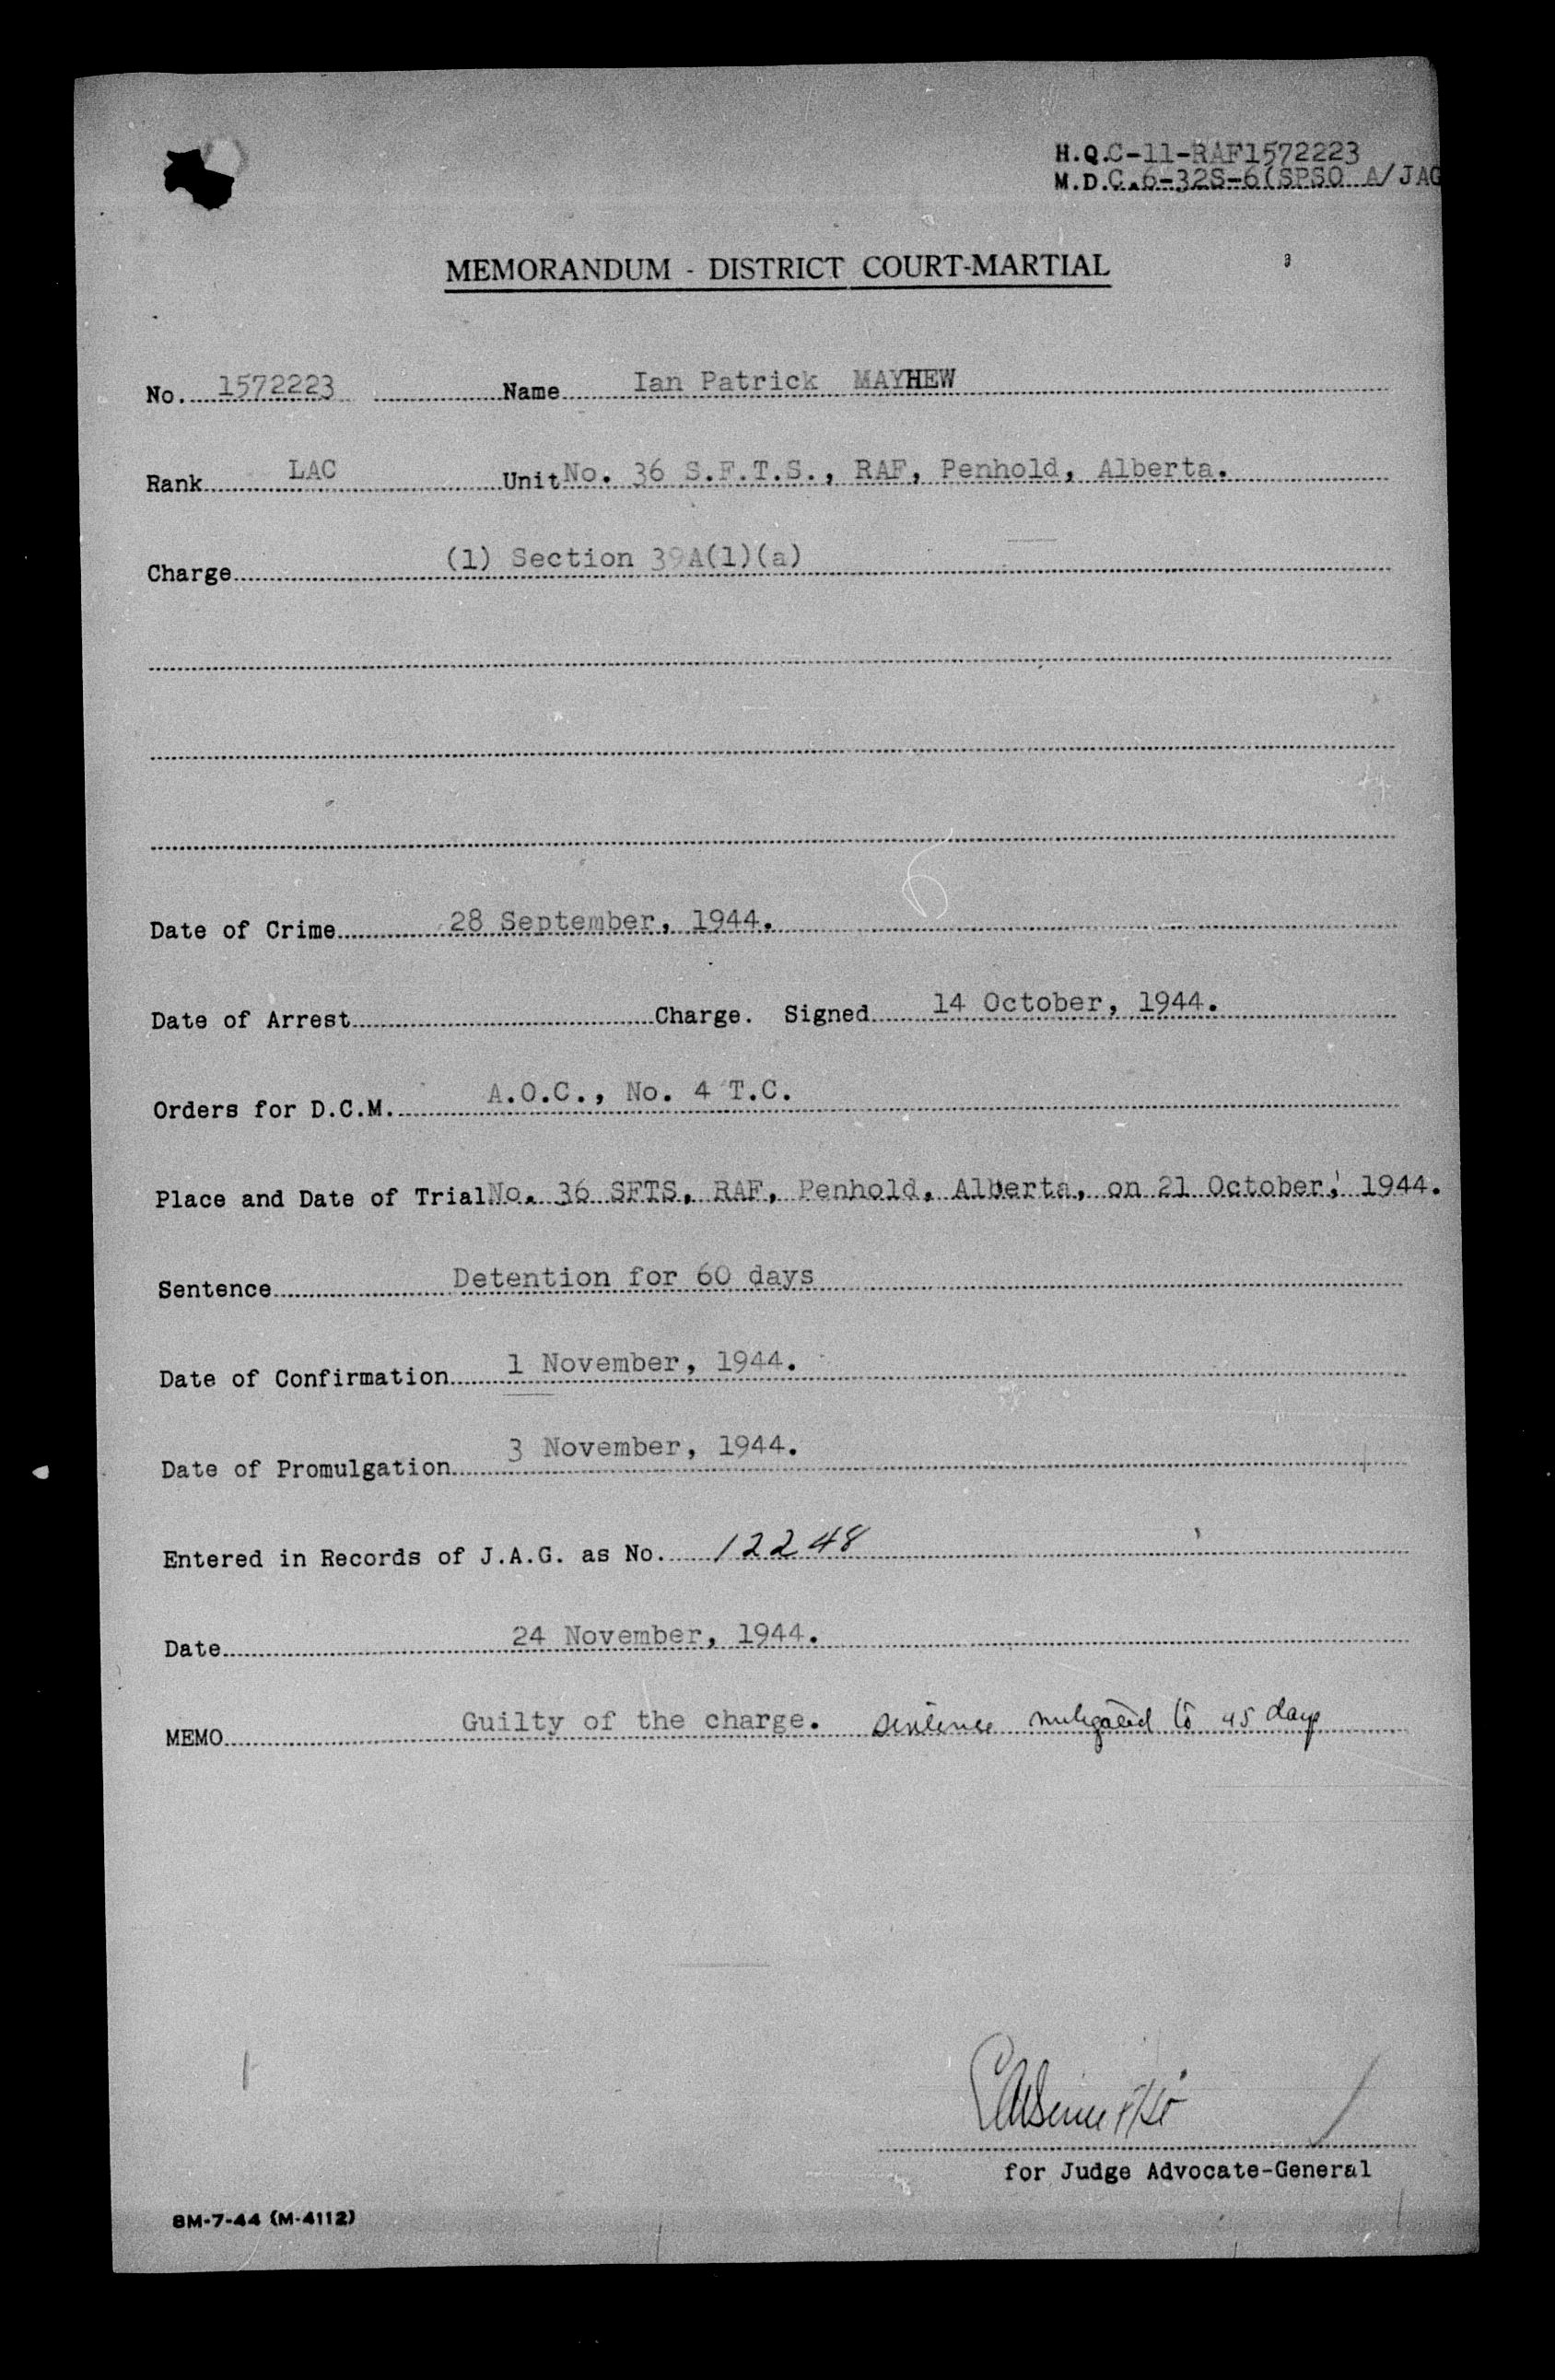 H.Q.C-11-RAF1572223
M.D.C.6-32S-6(SPSO A/JAG
MEMORANDUM - DISTRICT COURT-MARTIAL
No. 1572223 Name Ian Patrick MAYHEW
Rank LAC Unit No. 36 S.F.T.S., RAF, Penhold, Alberta.
Charge (1) Section 39A(1)(a)
Date of Crime 28 September, 1944.
Date of Arrest Charge. Signed 14 October, 1944.
Orders for D.C.M. A.O.C., No. 4 T.C.
Place and Date of Trial No. 36 SFTS, RAF, Penhold, Alberta, on 21 October, 1944.
Sentence Detention for 60 days
Date of Confirmation 1 November, 1944.
Date of Promulgation 3 November, 1944.
Entered in Records of J.A.G. as No. 12248
Date 24 November, 1944.
MEMO Guilty of the charge. sentence mitigated to 45 days
for Judge Advocate-General
8M-7-44 (M-4112)